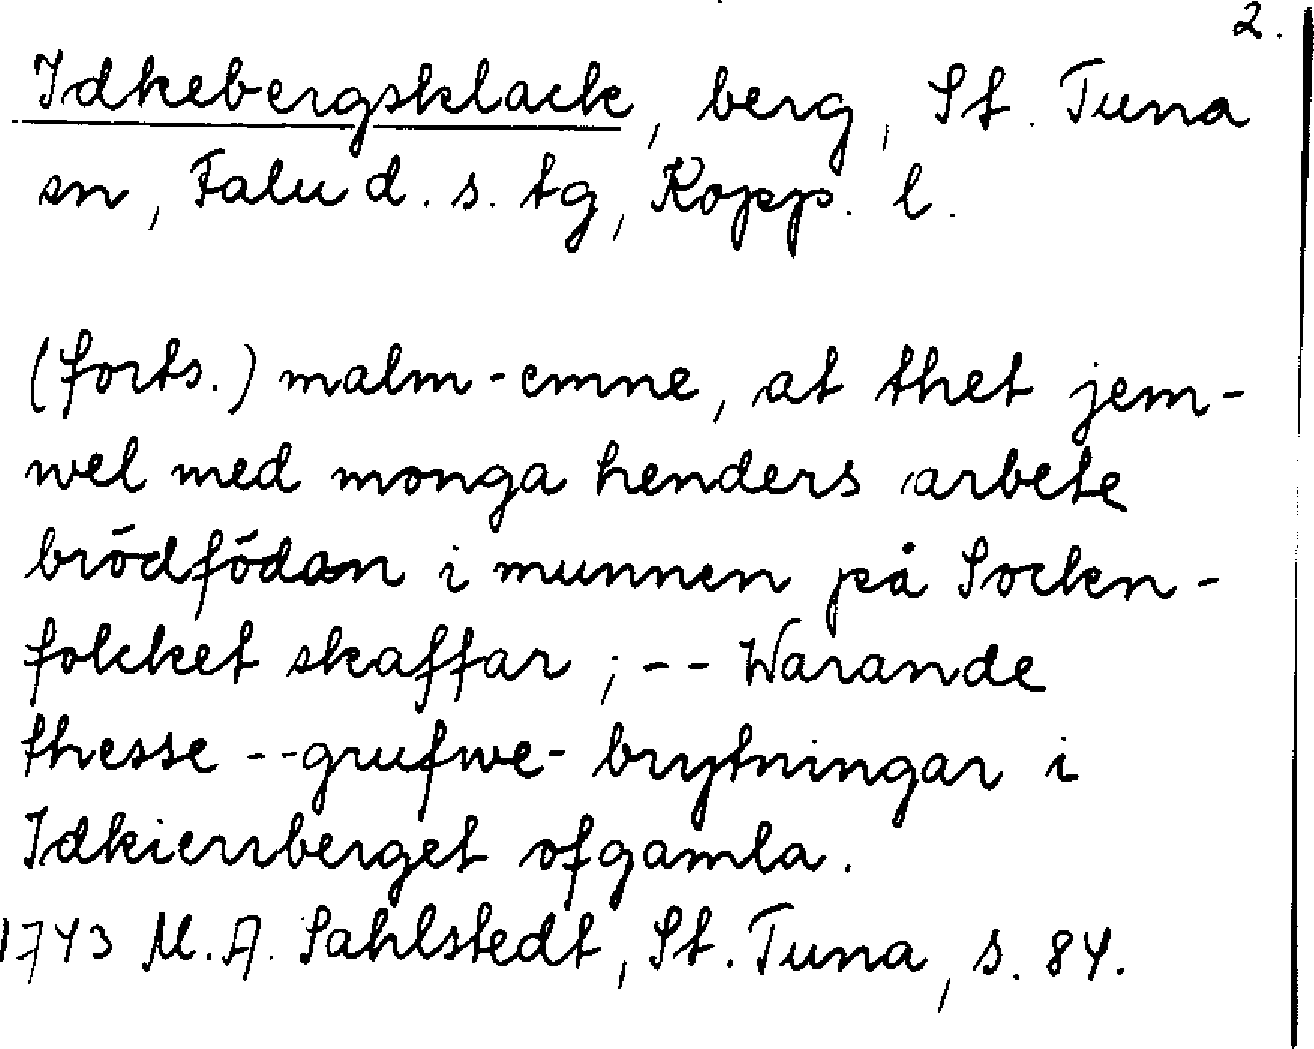 2.
Idkebergsklack, berg, St. Tuna
sn, Falu d. s. tg, Kopp. l.
(forts.) malm-emne, at thet jem-
wel med monga henders arbete
brödfödan i munnen på Socken-
folcket skaffar; -- Warande
thesse -- grufwe-brytningar i
Idkierrberget ofgamla.
1743 M. A. Sahlstedt, St. Tuna, s. 84.